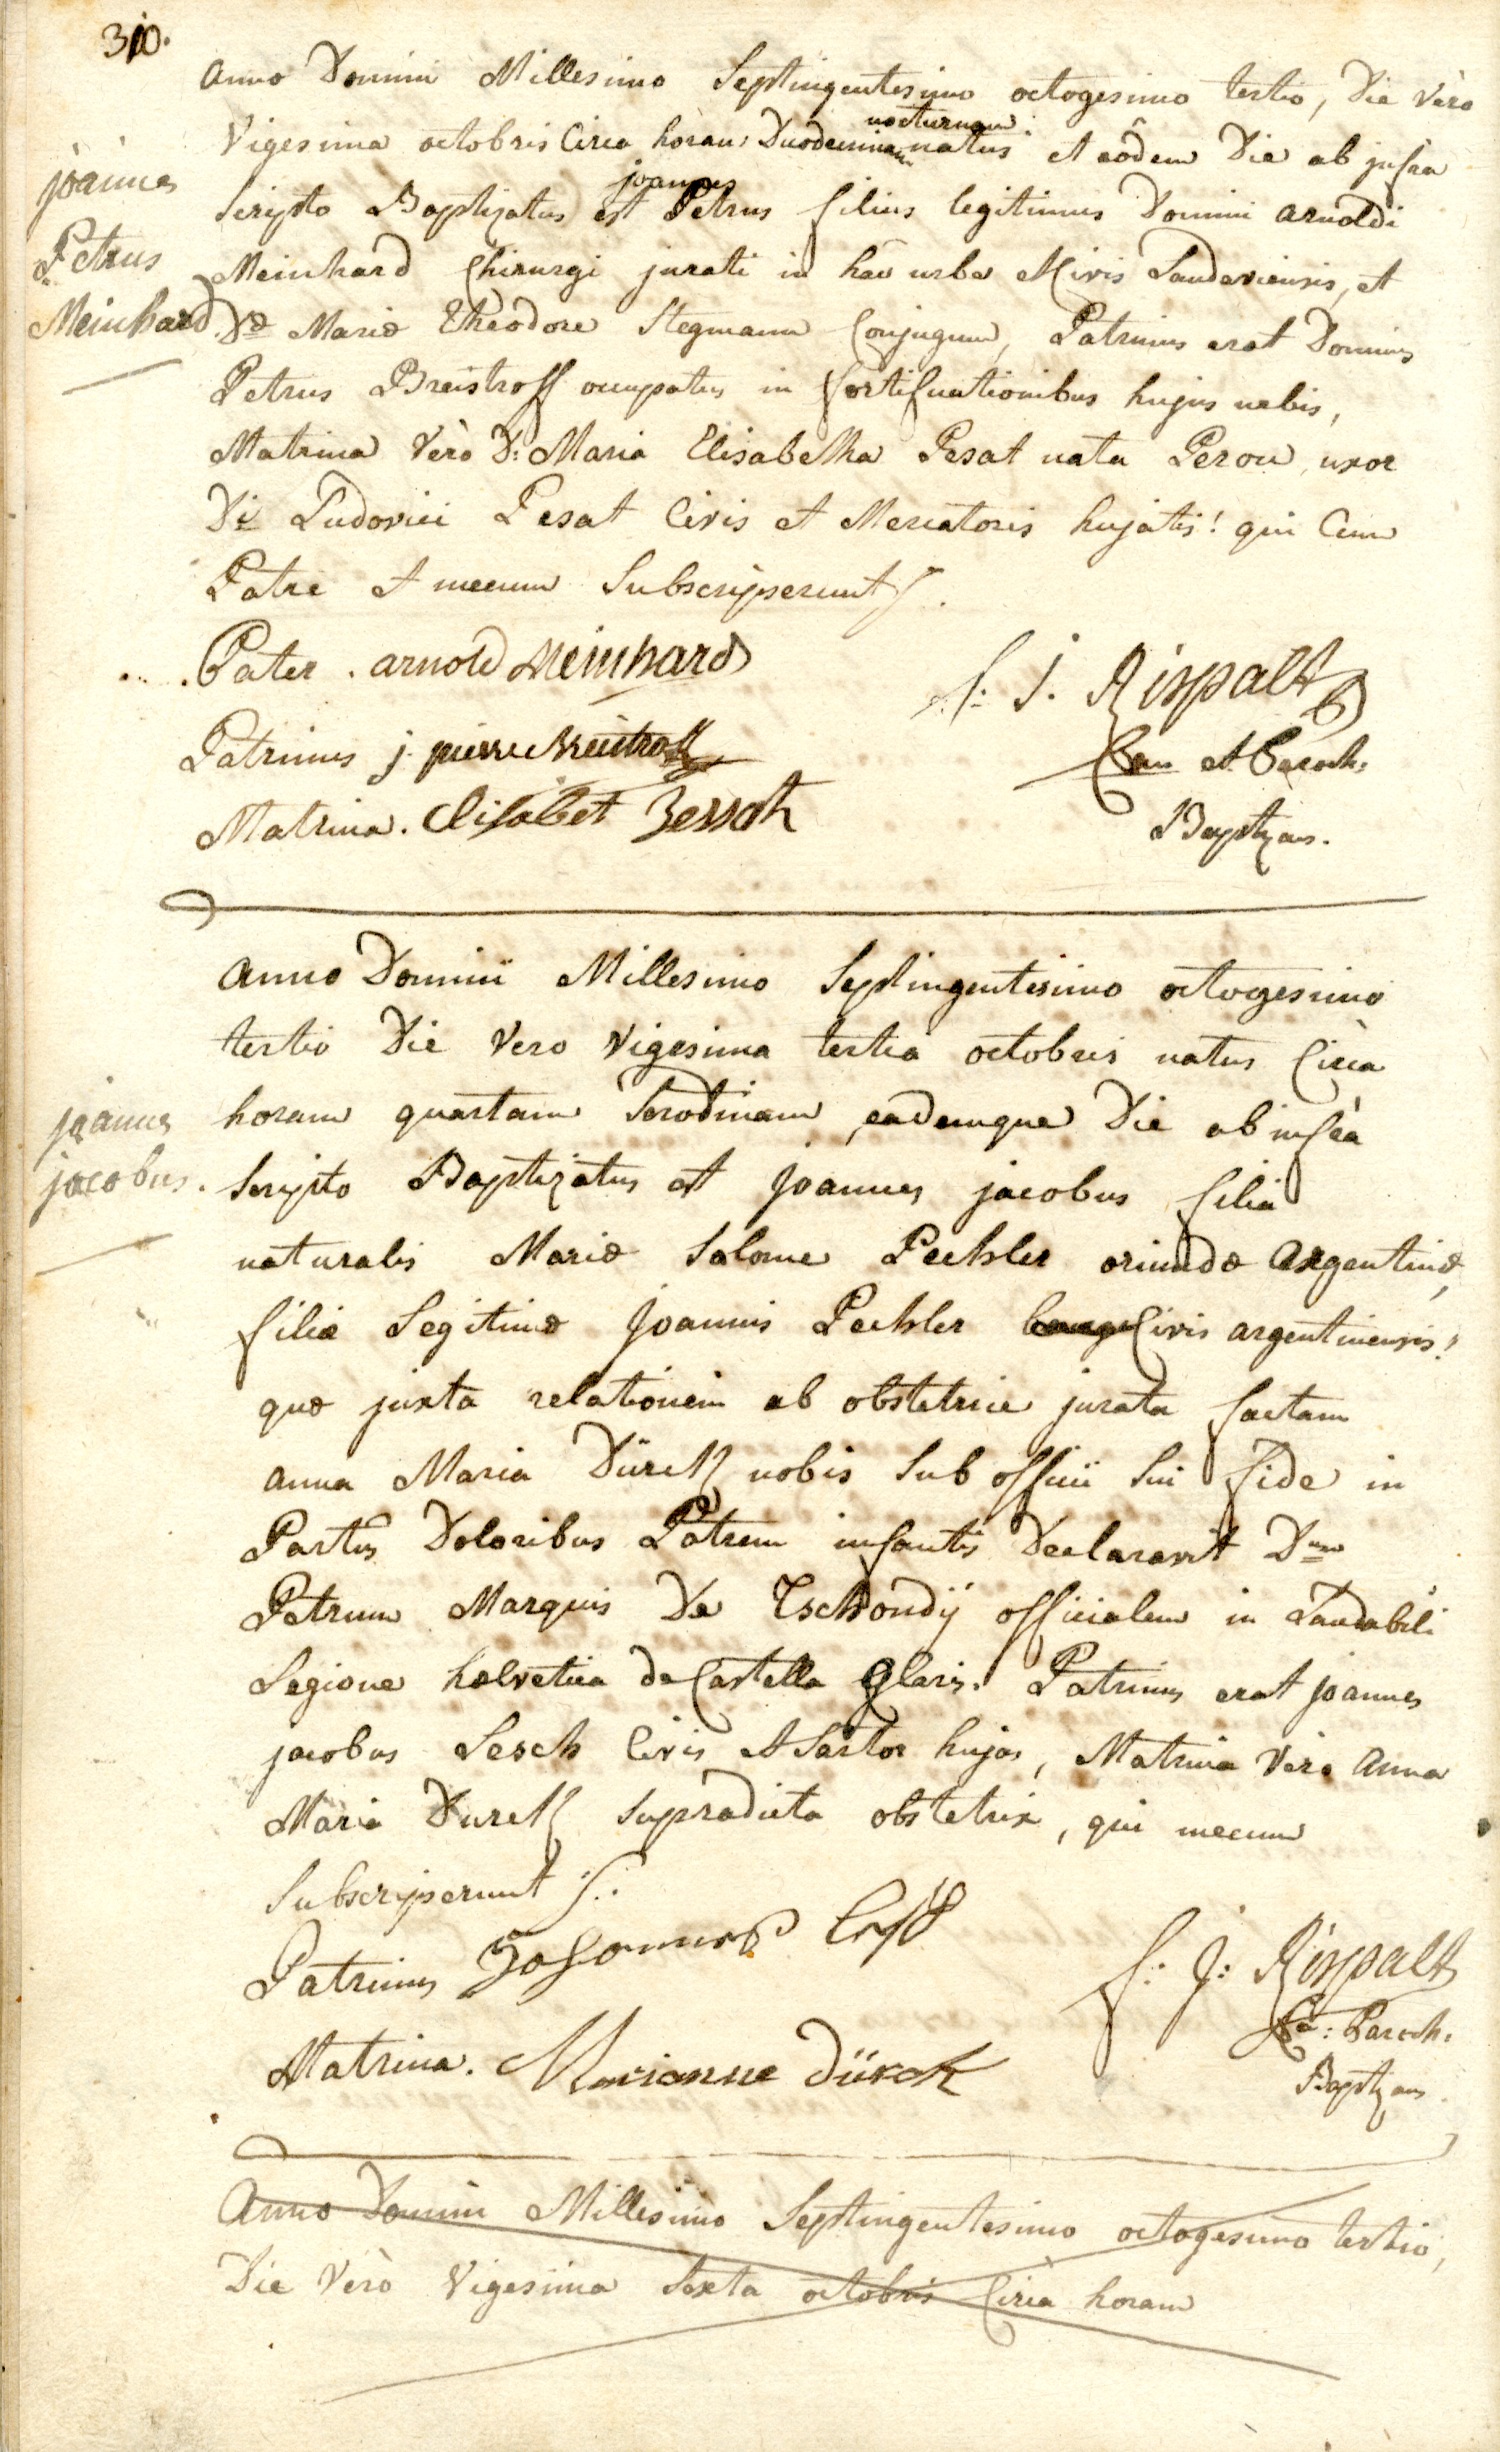 310.
Anno Domini Millesimo Septingentesimo octogesimo tertio, Die Vero
Vigesima octobris Circa horam Duodecimam nocturnam natus et eôdem Die ab jnfra
joannes
Scripto Baptizatus est joannes Petrus filius legitimus Domini Arnoldi
Petrus
Meinhard Chirurgi jurati in hac urbe Civis Landaviensis, et
Meinhard
Dæ Mariæ Theodore Stegmann Conjugum, Patrinus erat Dominus
Petrus Breistroff occupatus in fortificationibus hujus urbis,
Matrina Verò D: Maria Elisabetha Pesat nata Perou, uxor
Di Ludovici Pesat Civis et Mercatoris hujatis! qui Cum
Patre et mecum Subscripserunt
Pater . arnold Meinhard
f. j. Rispalt
Can et Paroch:
Baptizans.
Patrinus j. pierre Breistroff
Matrina. Elisabet
Anno Dominii Millesimo Septingentesimo octogesimo
tertio Die Vero Vigesima tertia octobris natus Circa
horam quartam Serotinam, eademque Die ab infra
joannes
jacobus.
Scripto Baptizatus est joannes jacobus filia
naturalis Mariæ Salome Pechsler oriundæ Argentinæ,
filiæ Legitimæ joannis Pechsler Civis argentinensis!
quæ juxta relationem ab obstetrice jurata factam
anna Maria Dürck nobis Sub officii Sui fide in
Partus Doloribus Patrem infantis Declaravit Dnum
Petrum Marquis De Tschoudÿ officialem in Laudabili
Legione helvetica de Castella Glaris. Patrinus erat joannes
jacobus Lesch Civis et Sartor hujas, Matrina Vero Anna
Maria Durck Supradicta obstetrix, qui mecum
Subscripserunt
Patrinus Johannes
f: j: Rispalt
Ca: Paroch.
Baptizans
Matrina. Marianne Dürck
Anno Domini Millesimo Septingentesimo octogesimo tertio,
Die Verò Vigesima Sexta octobris Circa horam